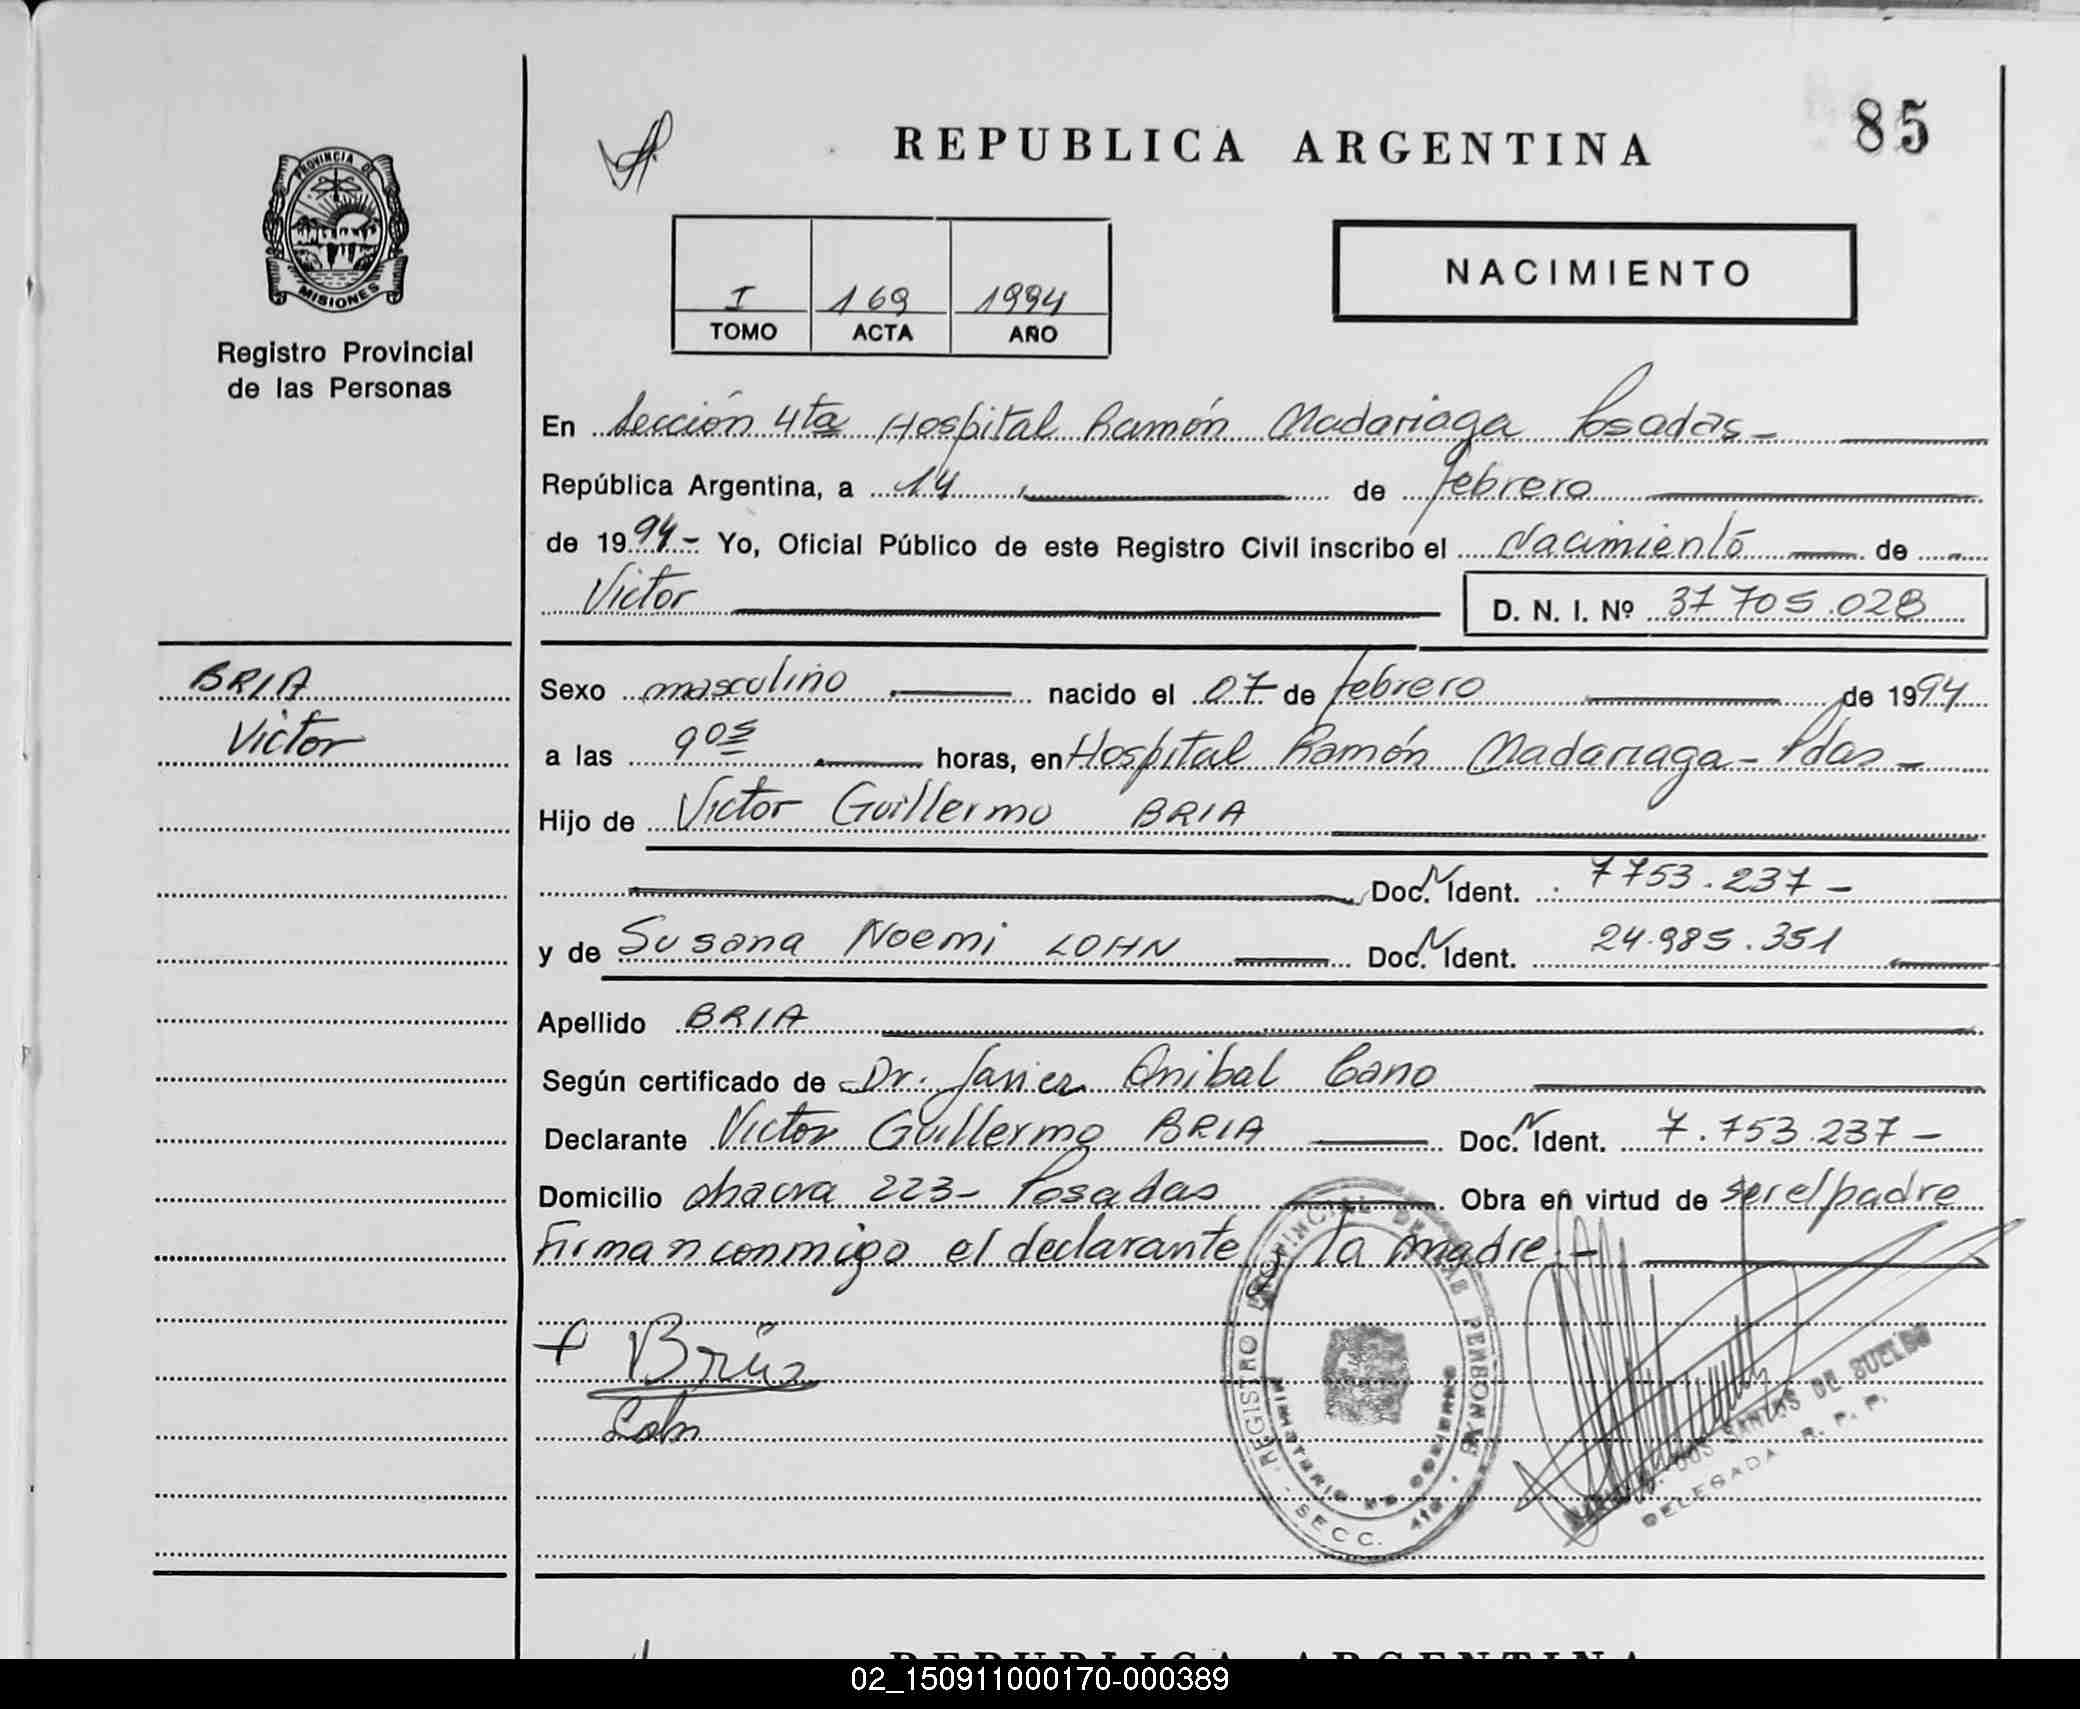 85
REPUBLICA ARGENTINA
PROVINCIA DE
MISIONES
Registro Provincial
de las Personas
I 169 1994
TOMO ACTA AÑO
NACIMIENTO
En Sección 4ta Hospital Ramón Madariaga Posadas-
República Argentina, a 14 de febrero
de 1994- Yo, Oficial Público de este Registro Civil inscribo el Nacimiento de
Victor D. N. I. Nº 37 705.028
BRIA
Victor
Sexo masculino nacido el 07 de febrero de 1994
a las 9 05 horas, en Hospital Ramón Madariaga- Pdas-
Hijo de Victor Guillermo BRIA
Doc. N Ident. 7753.237-
y de Susana Noemi LOHN Doc. N Ident. 24.985.351
Apellido BRIA
Según certificado de Dr. Javier Anibal Cano
Declarante Victor Guillermo BRIA Doc. N Ident. 7.753.237-
Domicilio chacra 223- Posadas Obra en virtud de ser el padre
Firman conmigo el declarante y la madre.-
Bria
Lohn
REGISTRO PROVINCIAL DE LAS PERSONAS
MINISTERIO DE GOBIERNO
SECC. 4ta
DOS SANTOS DE SUELDO
DELEGADA R. P. P.
REPUBLICA ARGENTINA
02_150911000170-000389